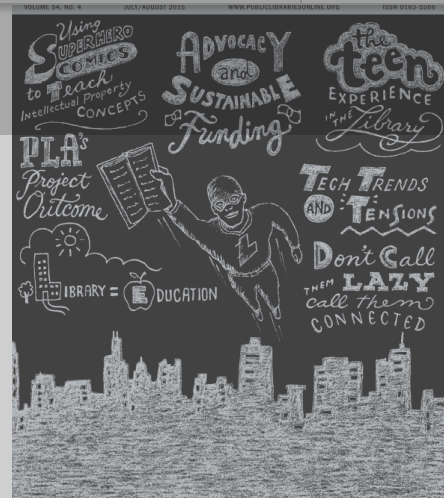 VOLUME 54, NO. 4 JULY/AUGUST 2015 WWW.PUBLICLIBRARIESONLINE.ORG ISSN 0163-5506
Using
SUPERHERO
COMICS
to Teach
Intellectual Property
CONCEPTS
ADVOCACY
and
SUSTAINABLE
Funding
the
teen
EXPERIENCE
IN THE Library
PLA's
Project
Outcome
LIBRARY = EDUCATION
L
TECH TRENDS
AND TENSIONS
Don't Call
THEM LAZY
call them
CONNECTED